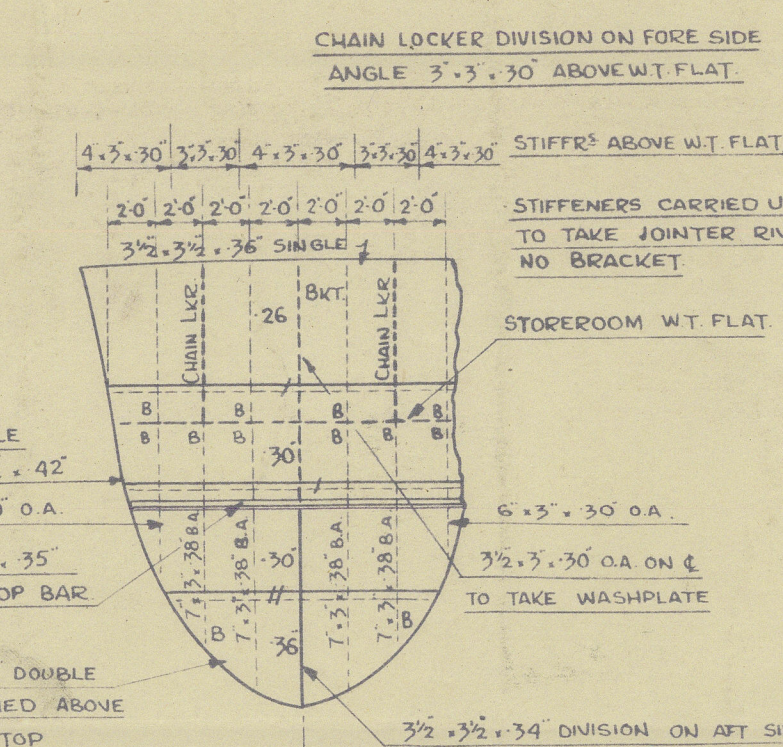 CHAIN LOCKER DIVISION ON FORE SIDE
ANGLE 3" x 3" x .30" ABOVE W.T. FLAT.
4" x 3" x .30" 3" x 3" x .30" 4" x 3" x .30" 3" x 3" x .30" 4" x 3" x .30" STIFFRS ABOVE W.T. FLAT
2'-0" 2'-0" 2'-0" 2'-0" 2'-0" 2'-0" 2'-0"
STIFFENERS CARRIED U
TO TAKE JOINTER RIV
NO BRACKET.
3½" x 3½" x .36" SINGLE
CHAIN LKR. .26 BKT. CHAIN LKR.
STOREROOM W.T. FLAT.
B B B B
B B B B B B
.30"
LE
x .42"
" O.A.
x .35"
OP BAR.
6" x 3" x .30" O.A.
7" x 3" x .38" B.A. 7" x 3" x .38" B.A. .30" 7" x 3" x .38" B.A. 7" x 3" x .38" B.A.
3½" x 3" x .30" O.A. ON ℄
TO TAKE WASHPLATE
B .36" B
DOUBLE
IED ABOVE
TOP
3½" x 3½" x .34" DIVISION ON AFT SI